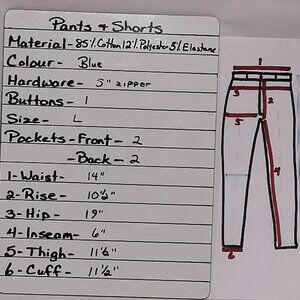 Pants & Shorts
Material - 85% Cotton 12% Polyester 3% Elastane
Colour - Blue
Hardware - 5" zipper
Buttons - 1
Size - L
Pockets - Front - 2
- Back - 2
1 - Waist - 14"
2 - Rise - 10½"
3 - Hip - 19"
4 - Inseam - 6"
5 - Thigh - 11½"
6 - Cuff - 11½"
1
2
3
5
4
6